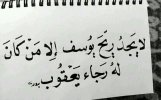 لا يَجِدُ رِيحَ يُوسف إلا مَن كَانَ
لَهُ رجَاء يَعْقُوب